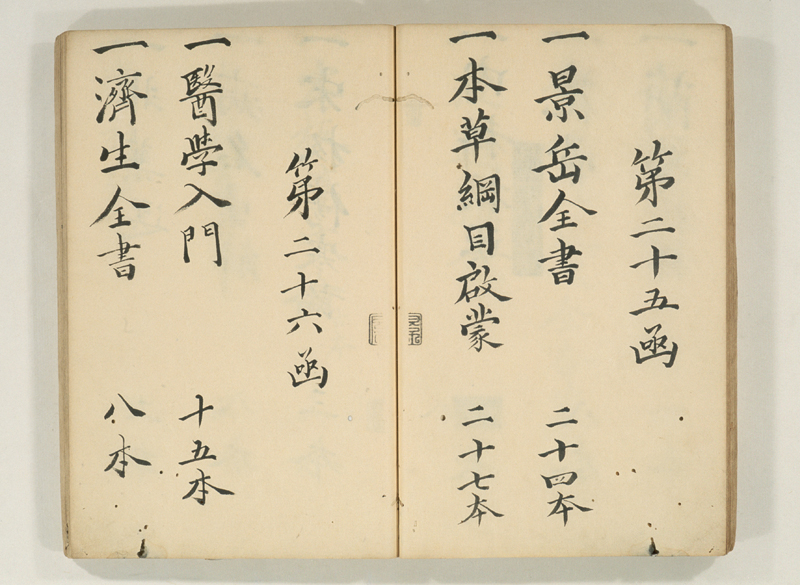 第二十五函
一景岳全書 二十四本
一本草綱目啟蒙 二十七本
第二十六函
一醫學入門 十五本
一濟生全書 八本